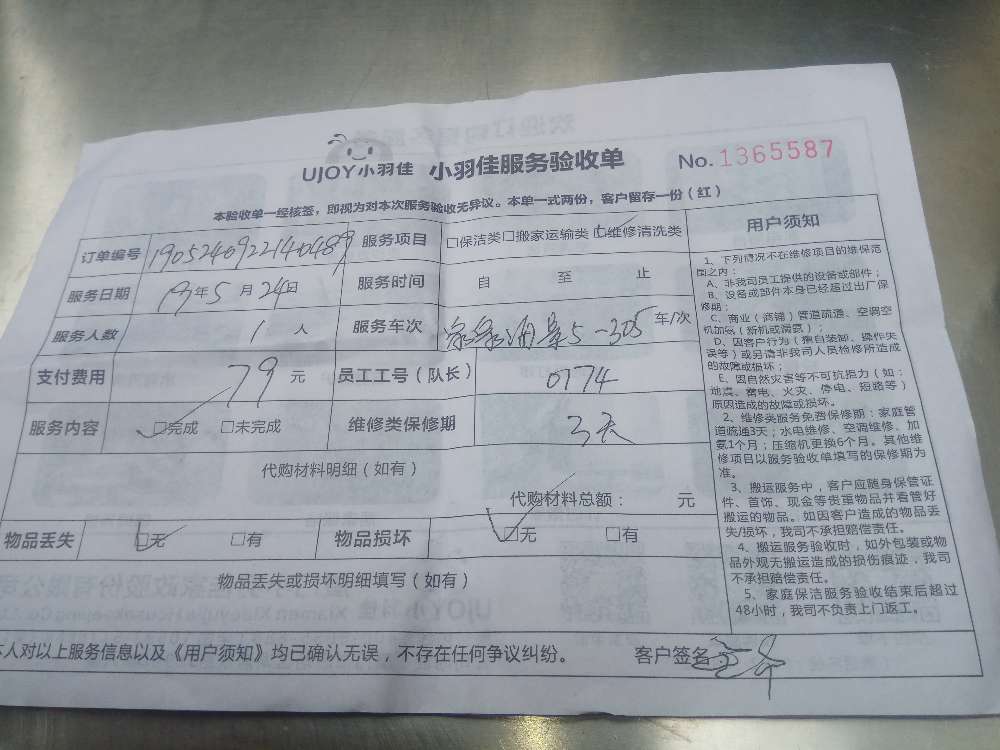 UJOY小羽佳 小羽佳服务验收单 No.1365587
本验收单一经核签，即视为对本次服务验收无异议。本单一式两份，客户留存一份（红）
订单编号 1905240922140489 服务项目 □保洁类□搬家运输类□维修清洗类
服务日期 19年5月24日 服务时间 自 至 止
服务人数 1人 服务车次 5-305 车/次
支付费用 79元 员工工号（队长） 0174
服务内容 □完成 □未完成 维修类保修期 3天
代购材料明细（如有）
代购材料总额： 元
物品丢失 □无 □有 物品损坏 □无 □有
物品丢失或损坏明细填写（如有）
本人对以上服务信息以及《用户须知》均已确认无误，不存在任何争议纠纷。 客户签名
用户须知
1、下列情况不在维修项目的维保范
围之内：
A、非我司员工提供的设备或部件；
B、设备或部件本身已经超过出厂保
修期；
C、商业（商铺）管道疏通、空调空
机加氨（新机或漏氨）；
D、因客户行为（擅自装卸、操作失
误等）或另请非我司人员检修所造成
的故障或损坏；
E、因自然灾害等不可抗损力（如：
地震、雷电、火灾、停电、短路等）
原因造成的故障或损坏。
2、维修类服务免费保修期：家庭管
道疏通3天；水电维修、空调维修、加
氨1个月；压缩机更换6个月。其他维
修项目以服务验收单填写的保修期为
准。
3、搬运服务中，客户应随身保管证
件、首饰、现金等贵重物品并看管好
搬运的物品。如因客户造成的物品丢
失/损坏，我司不承担赔偿责任。
4、搬运服务验收时，如外包装或物
品外观无搬运造成的损伤痕迹，我司
不承担赔偿责任。
5、家庭保洁服务验收结束后超过
48小时，我司不负责上门返工。